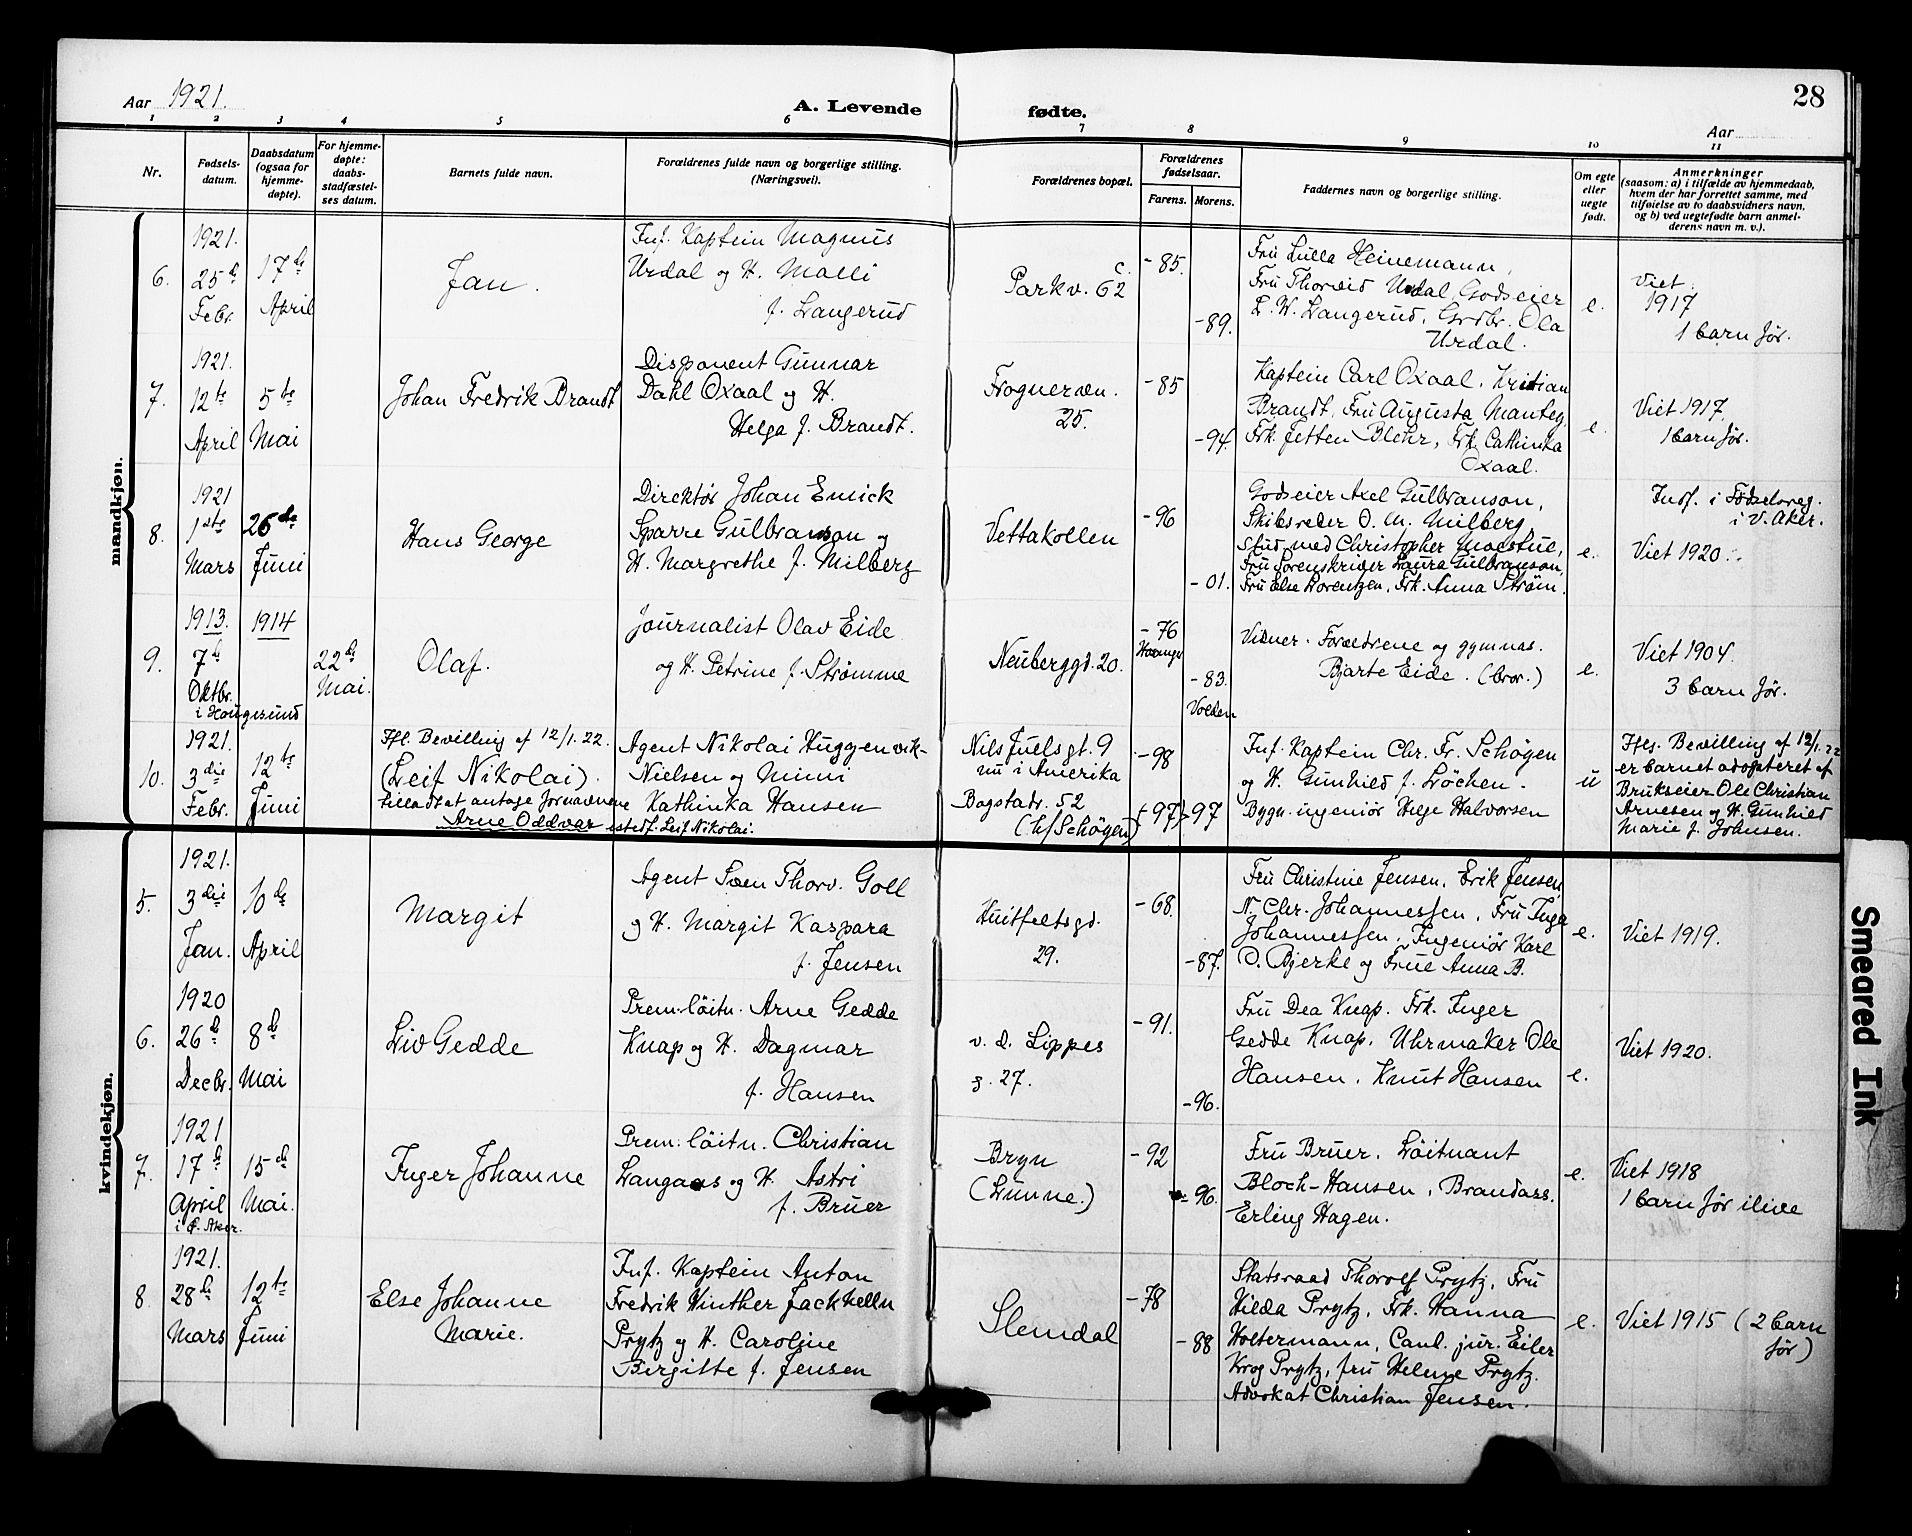 Aar 1921.
A. Levende fødte.
28
Aar
1 2 3 4 5 6 7 8 9 10 11
Nr.
Fødsels-
datum.
Daabsdatum
(ogsaa for
hjemme-
døpte).
For hjemme-
døpte:
daabs-
stadfæstel-
ses datum.
Barnets fulde navn.
Forældrenes fulde navn og borgerlige stilling.
(Næringsvei).
Forældrenes bopæl.
Forældrenes
fødselsaar.
Farens. Morens.
Faddernes navn og borgerlige stilling.
Om egte
eller
uegte
født.
Anmerkninger
(saasom: a) i tilfælde av hjemmedaab,
hvem der har forrettet samme, med
tilføielse av to daabsvidners navn,
og b) ved uegtefødte barn anmel-
derens navn m. v.).
mandkjøn.
6.
1921.
25de
Febr.
17de
April
Jan.
Inf. Kaptein Magnus
Urdal og H. Malli
f. Langerud
Parkv. 62 c.
-85.
-89.
Fru Lulla Heinemann,
Fru Thorvid Urdal, Godseier
L. W. Langerud, Grdbr. Ola
Urdal.
e.
Viet
1917
1 barn før.
7.
1921.
12te
April
5te
Mai
Johan Fredrik Brandt
Disponent Gunnar
Dahl Oxaal og H.
Helga f. Brandt.
Frognervn.
25.
-85
-94.
Kaptein Carl Oxaal, Kristian
Brandt, Fru Augusta Mantey
Frk. Jetten Blehr, Frk. Cathinka
Oxaal.
e.
Viet 1917.
1 barn før.
8.
1921
1ste
Mars
26de
Juni
Hans George
Direktør Johan Emick
Sparre Gulbranson og
H. Margrethe f. Milberg
Vettakollen
-96
-01.
Godseier Axel Gulbranson,
Skibsreder O. M. Milberg,
Stud. med Christopher Moestue,
Fru Sorenskriver Laura Gulbranson,
Fru Else Lorentzen, Frk. Anna Strøm.
e.
Indf. i Fødselsreg.
i V. Aker.
Viet 1920.
9.
1913.
7de
Oktbr.
i Haugesund
1914
22de
Mai.
Olaf.
Journalist Olav Eide
og H. Petrine f. Strømme
Neuberggd. 20.
-76
-83.
Volden
Vidner. Forældrene og gymnas.
Bjarte Eide. (bror.)
e.
Viet 1904.
3 barn før.
10.
1921.
3die
Febr.
12te
Juni
Ifl. Bevilling af 12/1.22.
(Leif Nikolai).
tilladt at antage fornavnene
Arne Oddvar istedf. Leif Nikolai.
Agent Nikolai Huggenvik-
Nielsen og Mimi
Kathinka Hansen
Nils Juelsgt. 9
nu i Amerika
Bogstadv. 52
(h/ Schøgen)
-98
(97)-97
Inf. Kaptein Chr. Fr. Schøgen
og H. Gunhild f. Løchen.
Bygn. ingeniør Helge Halvorsen
u
Ifls. Bevilling af 12/1.22
er barnet adopteret af
Brukseier Ole Christian
Arnesen og H. Gunhild
Marie f. Johnsen.
kvindekjøn.
5.
1921.
3die
Jan.
10de
April
Margit
Agent Sven Thorv. Goll
og H. Margit Kaspara
f. Jensen
Huitfeltsgd.
29.
-68.
-87.
Fru Christine Jensen, Erik Jensen,
N. Chr. Johannessen, Fru Inga
Johannessen, Ingeniør Karl
O. Bjerke og Frue Anna B.
e.
Viet 1919.
6.
1920
26de
Decbr.
8de
Mai
Liv Gedde
Prem.løitn. Arne Gedde
Knap og H. Dagmar
f. Hansen
v. d. Lippes
g. 27.
-91.
-96.
Fru Dea Knap. Frk. Inger
Gedde Knap, Uhrmaker Ole
Hansen, Knut Hansen
e.
Viet 1920.
7.
1921
17de
April
i Ø. Aker.
15de
Mai.
Inger Johanne
Prem. løitn. Christian
Langaas og H. Astri
f. Bruer
Bryn
(Lunne.)
-92
-96.
Fru Bruer, Løitnant
Bloch-Hansen, Brandass.
Erling Hagen.
e.
Viet 1918
1 barn før ilive
8.
1921.
28de
Mars
12te
Juni
Else Johanne
Marie.
Inf. Kaptein Anton
Fredrik Winther Jackhelln
Prytz og H. Caroline
Birgitte f. Jensen
Slemdal
-78
-88
Statsraad Thorolf Prytz, Fru
Hilda Prytz, Frk. Hanna
Holtermann, Cand. jur. Eiler
Krog Prytz, fru Helene Prytz.
Advokat Christian Jensen.
e.
Viet 1915 (2 barn
før)
Smeared Ink